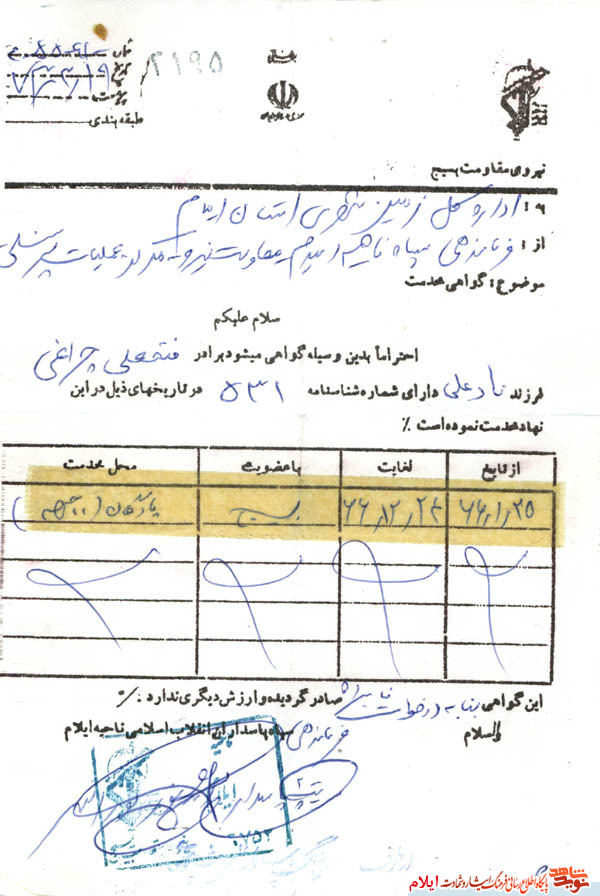 شماره
تاریخ ۷۳/۳/۱۹
پیوست
طبقه بندی
۲۱۹۵
نیروی مقاومت بسیج
به : اداره کل زمین شهری استان ایلام
از : فرماندهی سپاه ناحیه ایلام معاونت نیرو
موضوع : گواهی خدمت
سلام علیکم
احتراماً بدین وسیله گواهی میشود برادر فتحعلی چراغی
فرزند نادعلی دارای شماره شناسنامه ۵۳۱ در تاریخهای ذیل در این
نهاد خدمت نموده است ٪
از تاریخ لغایت با عضویت محل خدمت
۶۶/۱/۲۵ ۶۶/۱۲/۲۴ بسیج پادگان
این گواهی بنا به درخواست نامبرده صادر گردیده و ارزش دیگری ندارد ٪
والسلام
فرماندهی سپاه پاسداران انقلاب اسلامی ناحیه ایلام
۷۵۲
نوید شاهد
پایگاه اطلاع رسانی فرهنگ ایثار و شهادت ایلام